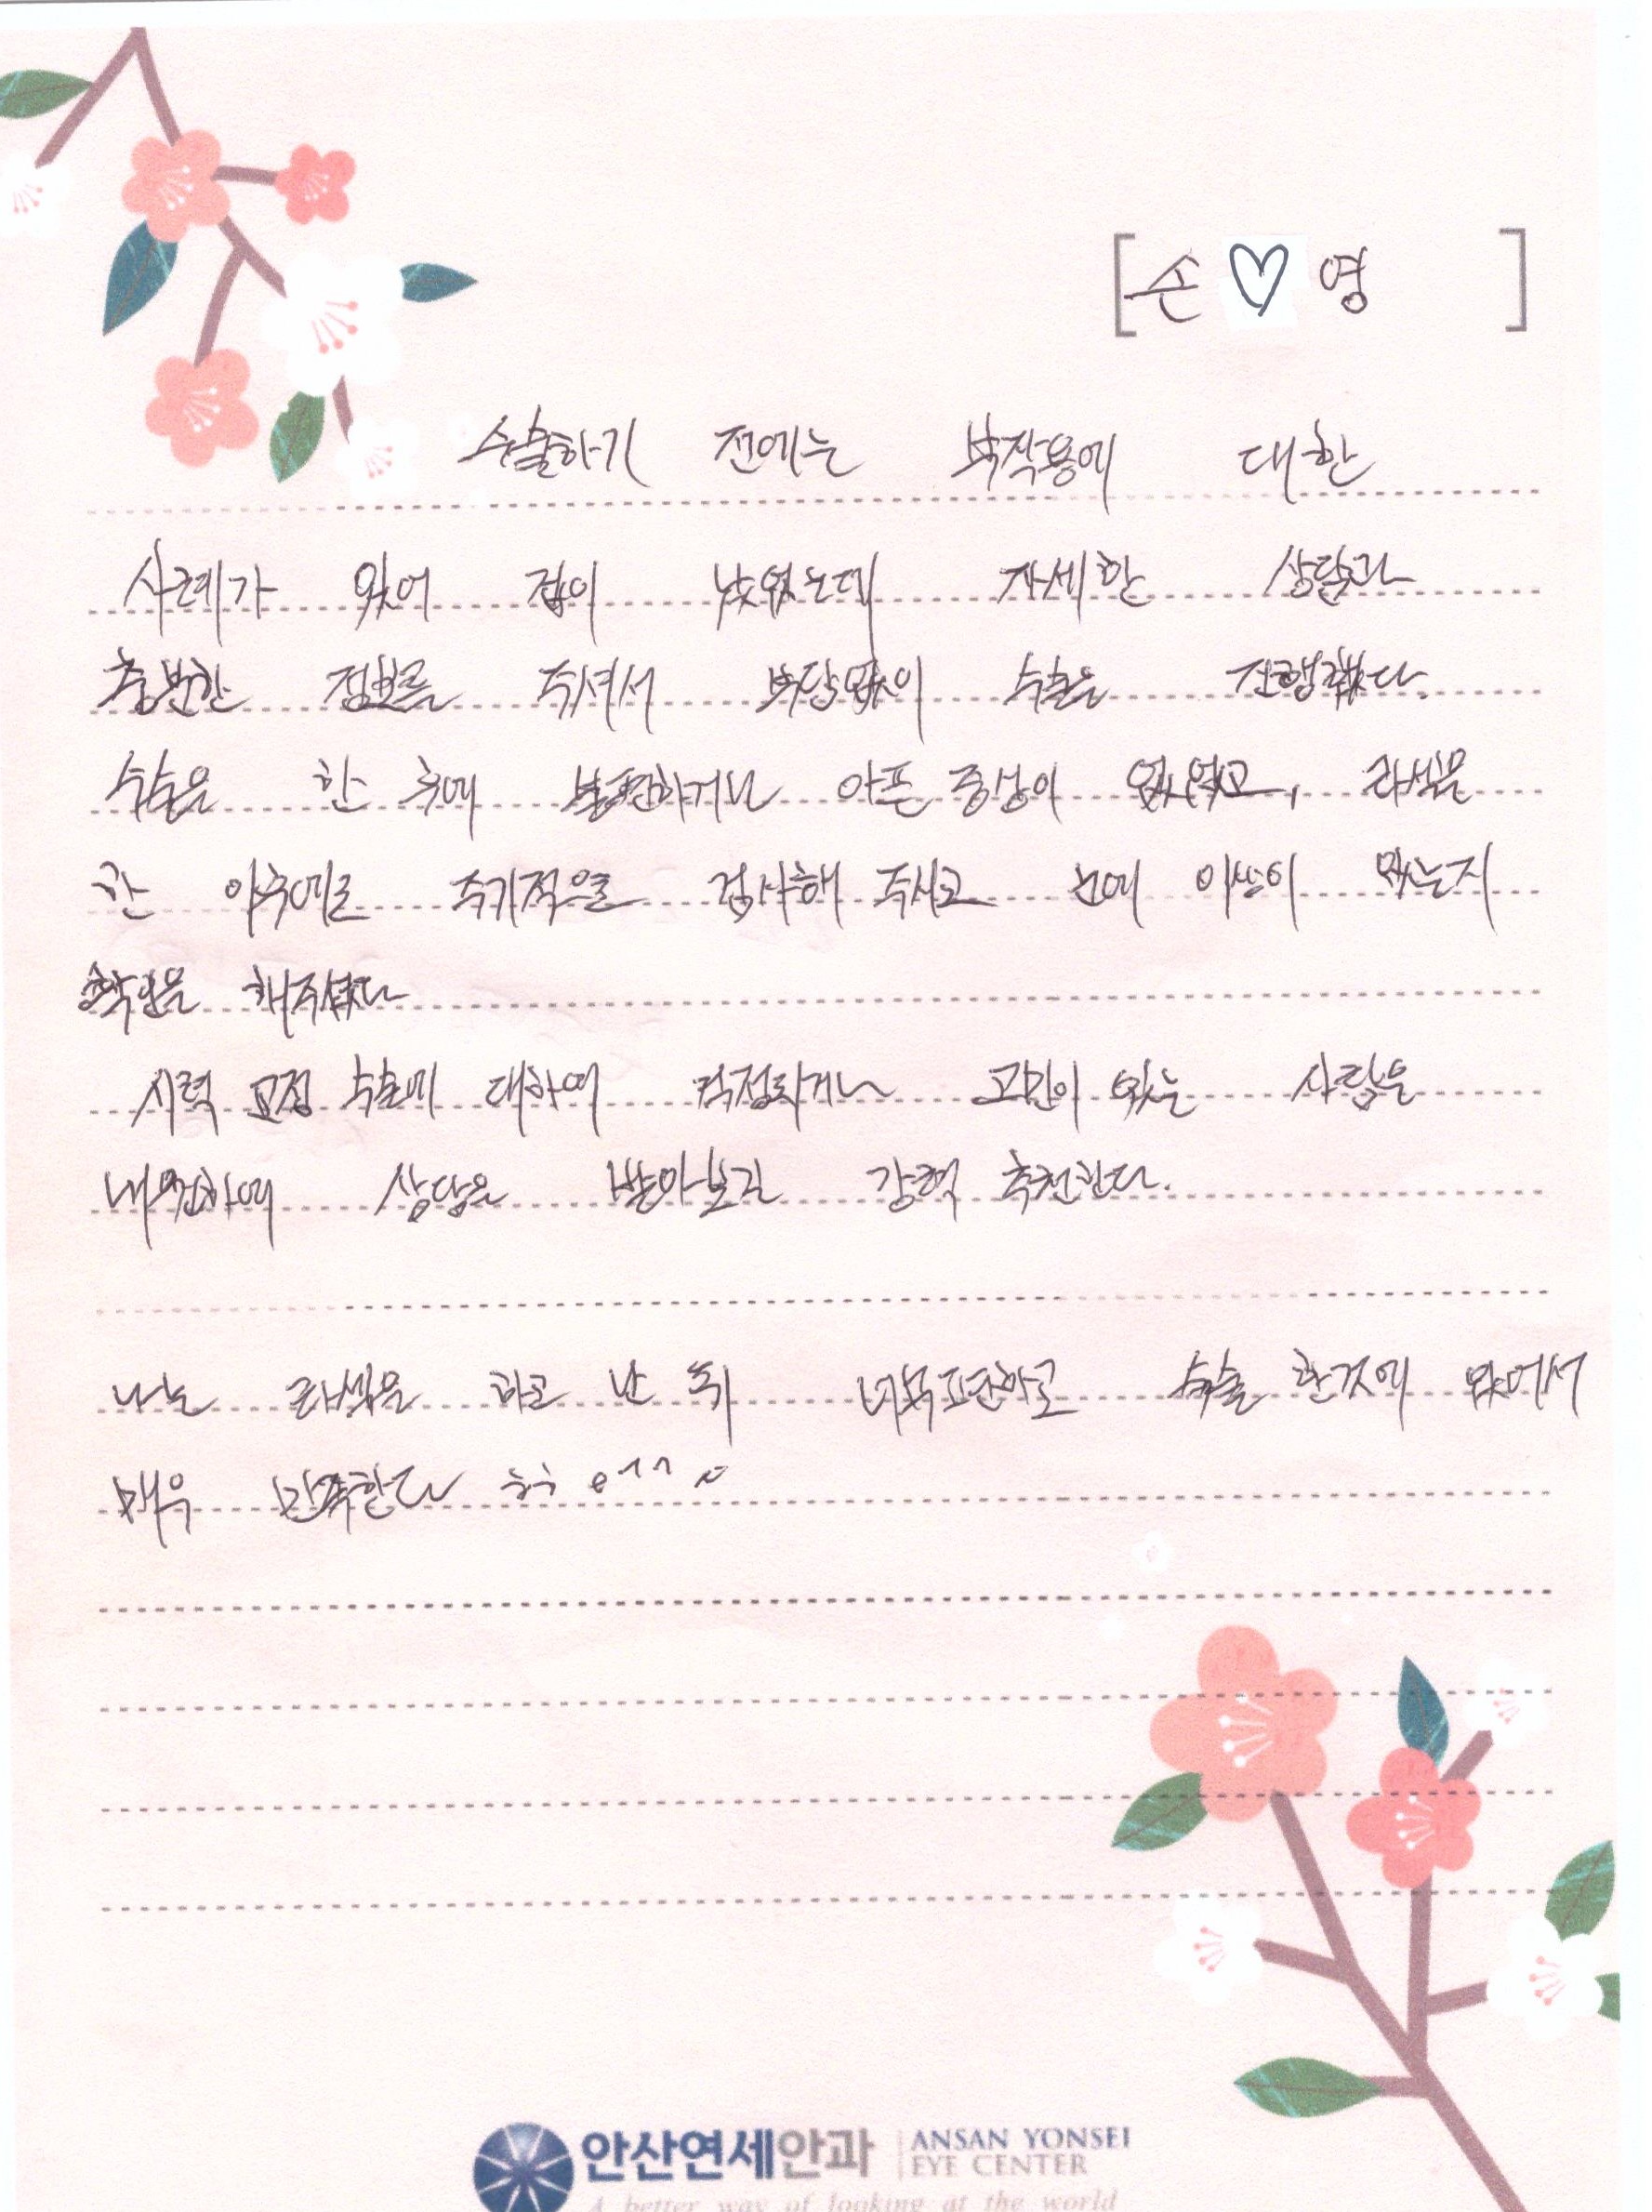 [손♡영]
수술하기 전에는 부작용에 대한
사례가 있어 겁이 났었는데 자세한 상담과
충분한 정보를 주셔서 부담없이 수술을 진행했다.
수술을 한 후에 불편하거나 아픈 증상이 없었고, 라섹을
한 이후에도 주기적으로 검사해 주시고 눈에 이상이 없는지
확인을 해주셨다
시력 교정 수술에 대하여 걱정하거나 고민이 있는 사람은
내원하여 상담을 받아보길 강력 추천한다.
나는 라섹을 하고 난 뒤 너무 편하고 수술 한것에 있어서
매우 만족한다 ㅎㅎ
안산연세안과 ANSAN YONSEI
EYE CENTER
A better way of looking at the world